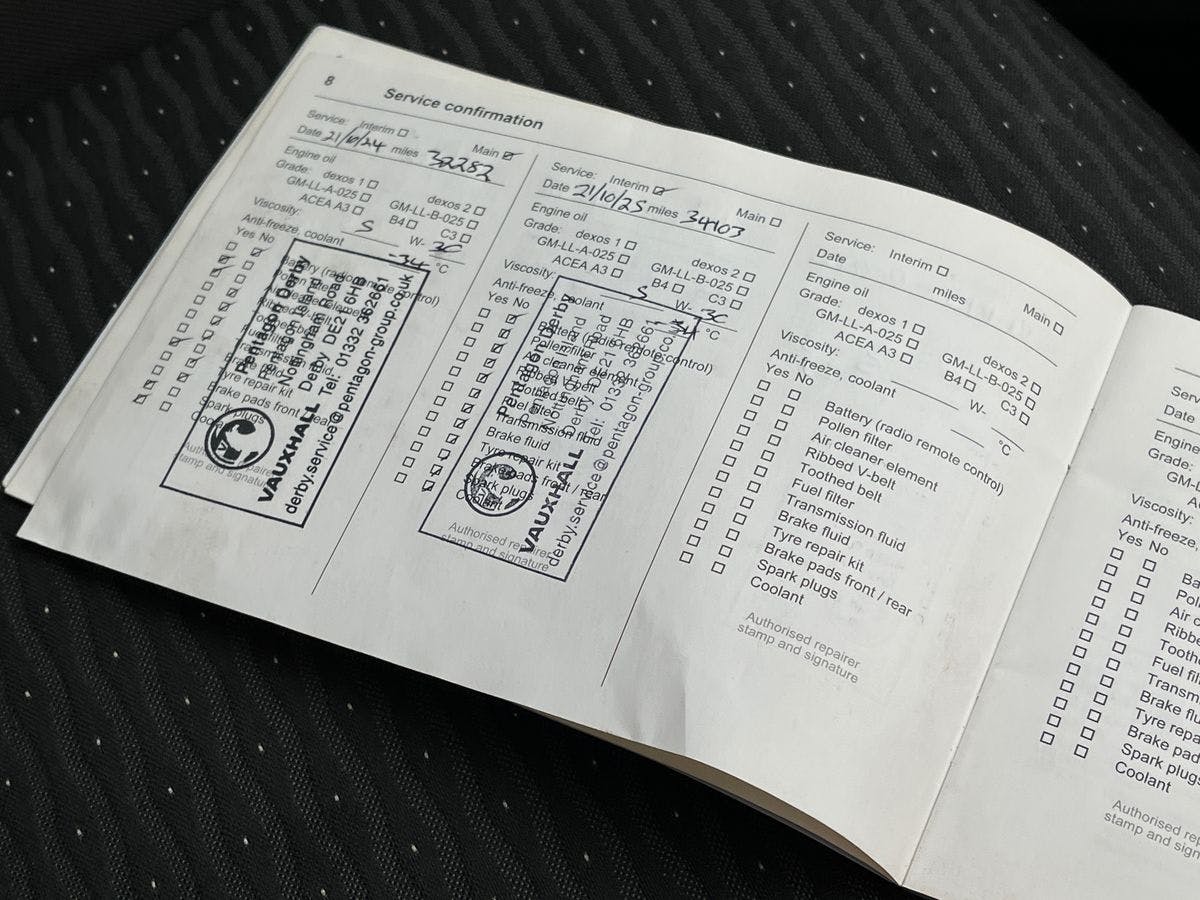 8
Service confirmation
Service: Interim ☐ Main ☑
Date 21/6/24 miles 32282
Engine oil
Grade: dexos 1 ☐ dexos 2 ☐
GM-LL-A-025 ☐ GM-LL-B-025 ☐
ACEA A3 ☐ B4 ☐ C3 ☐
Viscosity: 5 W- 30
Anti-freeze, coolant -34 °C
Yes No
Battery (radio remote control)
Tyre repair kit
Brake pads front / rear
Spark plugs
Coolant
Authorised repairer
stamp and signature
Pentagon Derby
Pentagon Island
Nottingham Road
Derby DE21 6HB
Tel: 01332 362661
VAUXHALL
derby.service@pentagon-group.co.uk
Service: Interim ☑ Main ☐
Date 21/10/25 miles 34103
Engine oil
Grade: dexos 1 ☐ dexos 2 ☐
GM-LL-A-025 ☐ GM-LL-B-025 ☐
ACEA A3 ☐ B4 ☐ C3 ☐
Viscosity: 5 W- 30
Anti-freeze, coolant -34 °C
Yes No
Battery (radio remote control)
Pollen filter
Air cleaner element
Ribbed V-belt
Toothed belt
Fuel filter
Transmission fluid
Brake fluid
Tyre repair kit
Brake pads front / rear
Spark plugs
Coolant
Authorised repairer
stamp and signature
Pentagon Derby
Pentagon Island
Nottingham Road
Derby DE21 6HB
Tel: 01332 362661
VAUXHALL
derby.service@pentagon-group.co.uk
Service: Interim ☐ Main ☐
Date miles
Engine oil
Grade: dexos 1 ☐ dexos 2 ☐
GM-LL-A-025 ☐ GM-LL-B-025 ☐
ACEA A3 ☐ B4 ☐ C3 ☐
Viscosity: W-
Anti-freeze, coolant °C
Yes No
☐ ☐ Battery (radio remote control)
☐ ☐ Pollen filter
☐ ☐ Air cleaner element
☐ ☐ Ribbed V-belt
☐ ☐ Toothed belt
☐ ☐ Fuel filter
☐ ☐ Transmission fluid
☐ ☐ Brake fluid
☐ ☐ Tyre repair kit
☐ ☐ Brake pads front / rear
☐ ☐ Spark plugs
☐ ☐ Coolant
Authorised repairer
stamp and signature
Servi
Date
Engine
Grade:
GM-L
Viscosity:
Anti-freeze
Yes No
Ba
Pol
Air c
Ribbe
Tooth
Fuel fil
Transm
Brake flu
Tyre repa
Brake pad
Spark plugs
Coolant
Authorised rep
stamp and sign